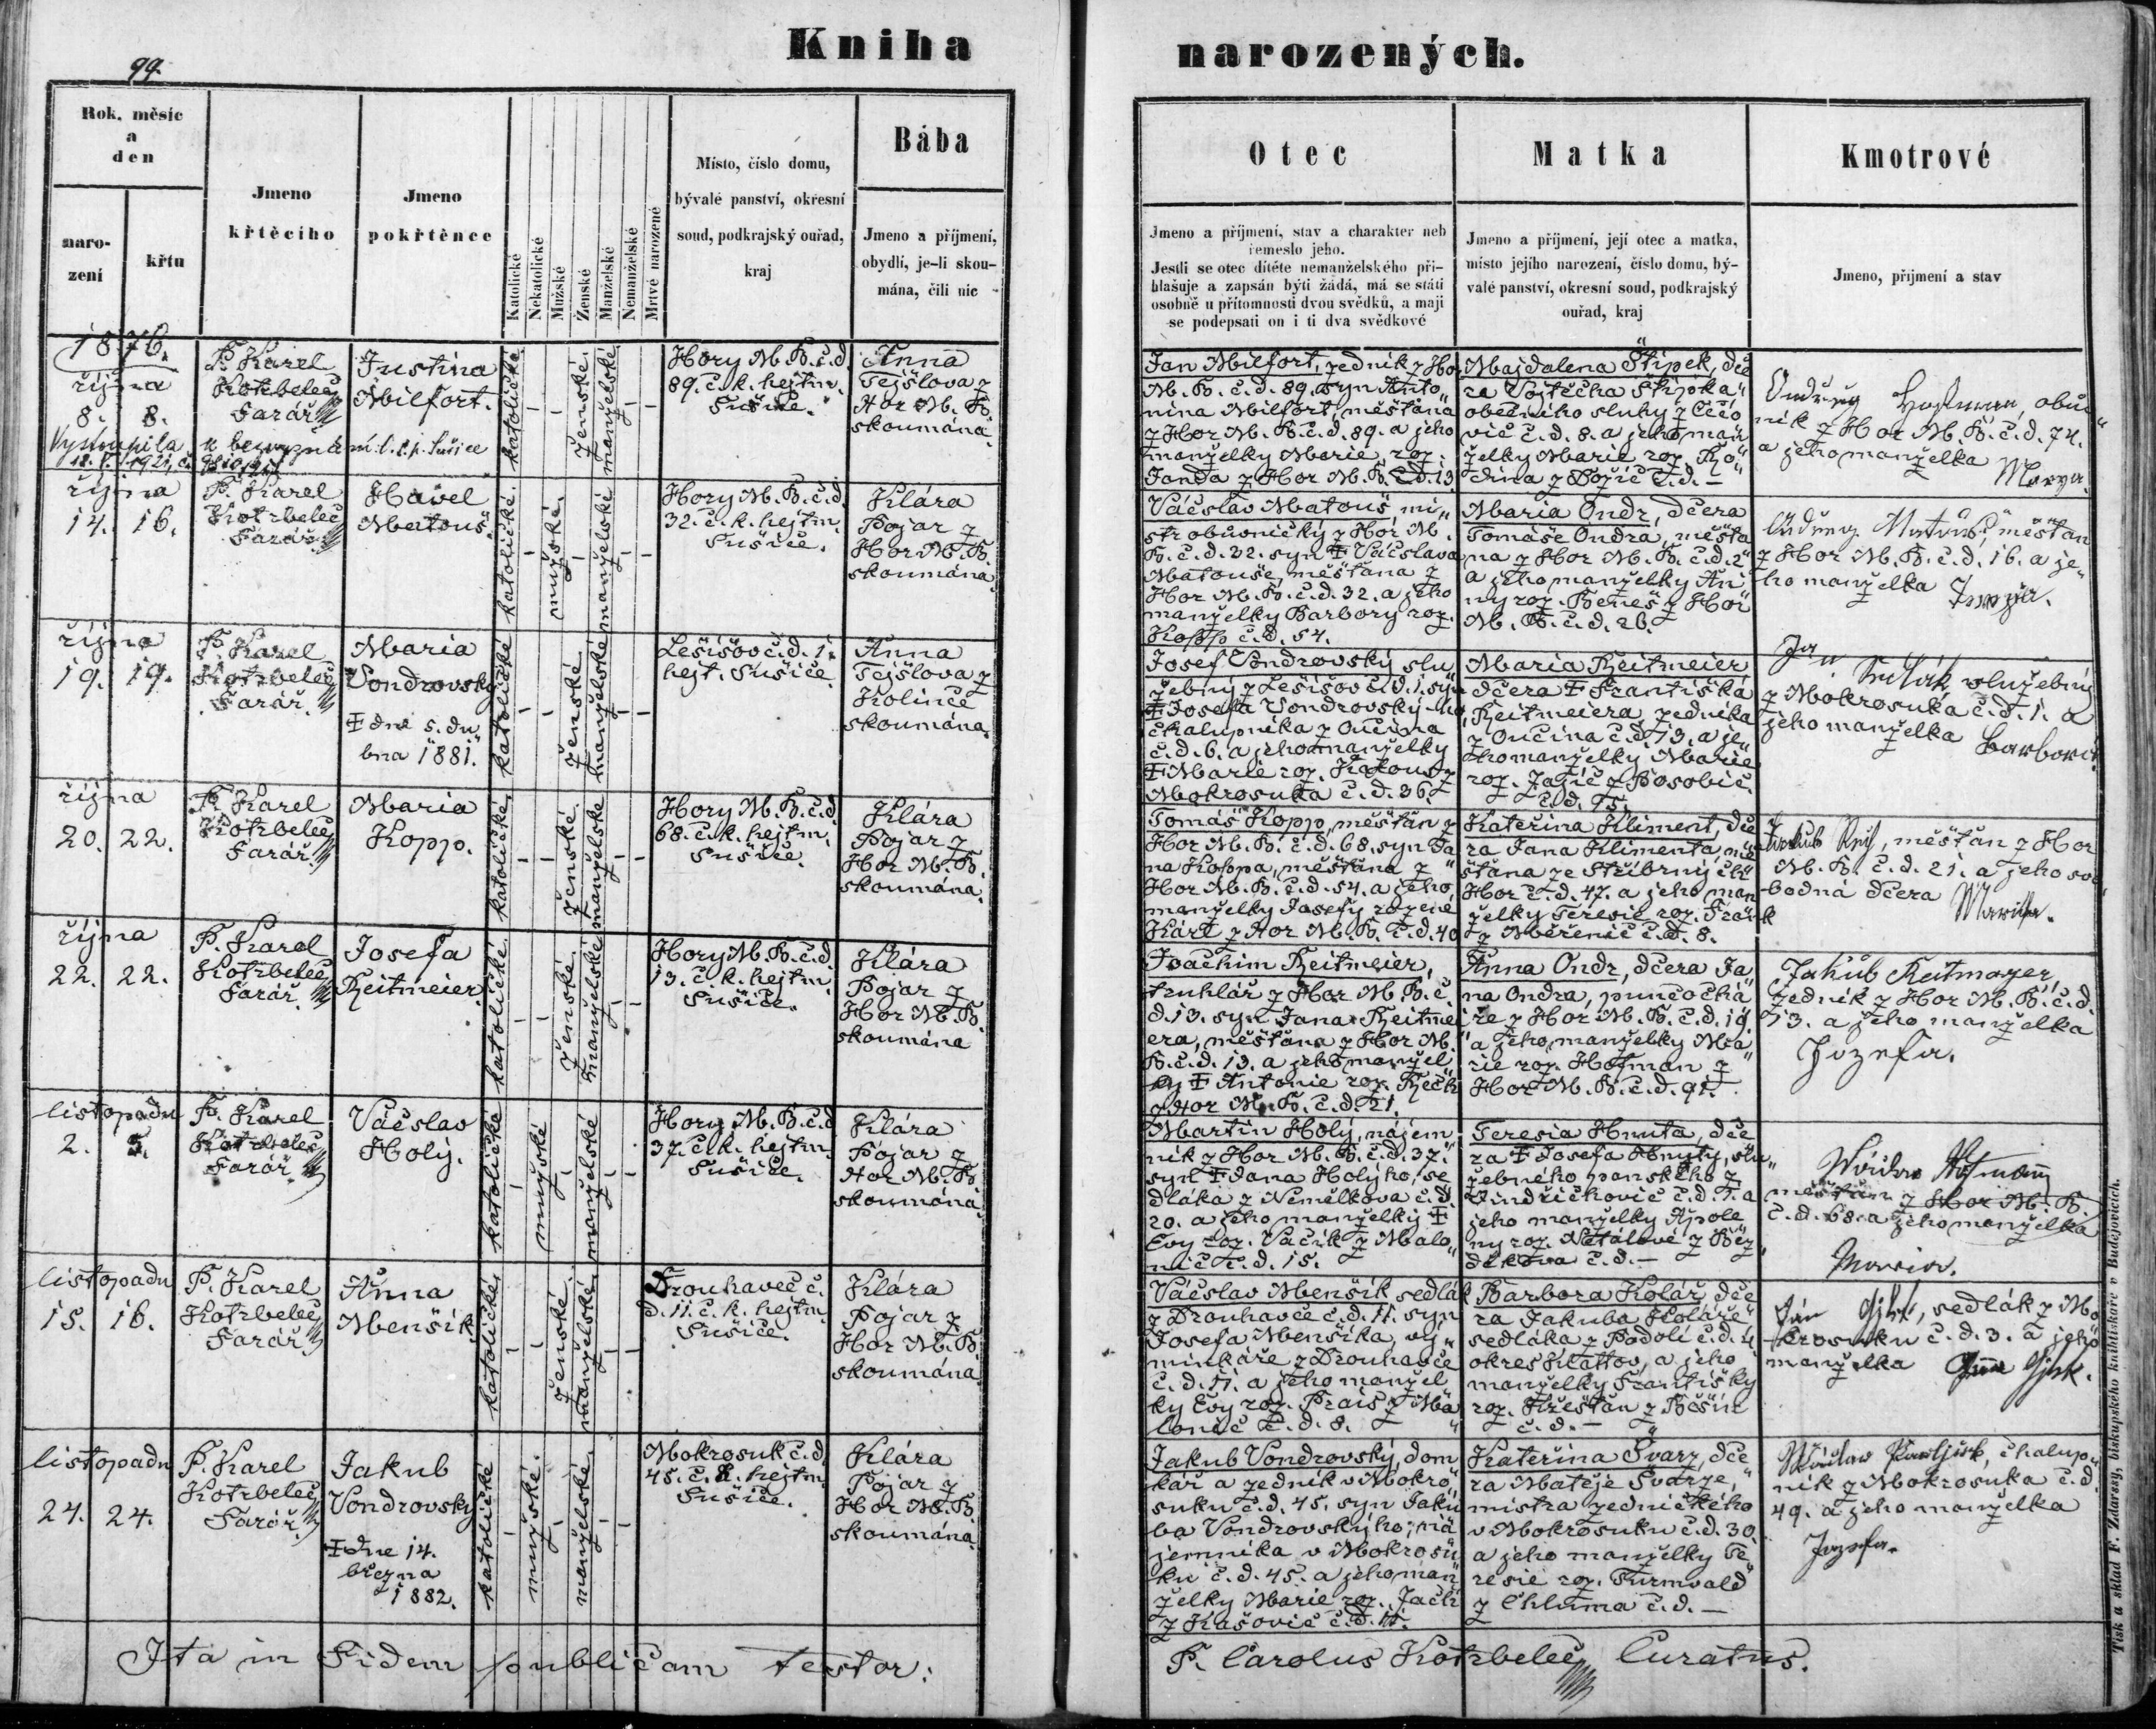 99.
Kniha
narozených.
Rok, měsíc
a
den
naro-
zení
křtu
Jmeno
křtěcího
Jmeno
pokřtěnce
Katolické
Nekatolické
Mužské
Ženské
Manželské
Nemanželské
Mrtvě narozené
Místo, číslo domu,
bývalé panství, okresní
soud, podkrajský ouřad,
kraj
Bába
Jmeno a příjmení,
obydlí, je-li skou-
mána, čili nic
Otec
Jmeno a příjmení, stav a charakter neb
řemeslo jeho.
Jestli se otec dítěte nemanželského při-
hlašuje a zapsán býti žádá, má se státi
osobně u přítomnosti dvou svědků, a mají
se podepsati on i ti dva svědkové
Matka
Jmeno a příjmení, její otec a matka,
místo jejího narození, číslo domu, bý-
valé panství, okresní soud, podkrajský
ouřad, kraj
Kmotrové
Jmeno, příjmení a stav
1876.
října
8. 8.
Vystoupila z bezvyzná
12. 1921, č.
P. Karel
Kotrbelec
Farář
Justina
Milfort.
katolické
ženské
manželské
Hory M. B. č. d.
89. c. k. hejtm.
Sušice.
Anna
Tejšlova z
Hor M. B.
skoumána.
Jan Milfort, zedník z Ho
M. B. č. d. 89. syn Anto„
nína Milfort, měšťana
z Hor M. B. č. d. 89. a jeho
manželky Marie, roz.
Janda z Hor M. B. č. d. 13.
Majdalena Štipek, dce
ra Vojtěcha Štipka
obecního sluhy z Čečo
vic č. d. 8. a jeho man
želky Marie roz.
č. d. —
Hofman, obuv
ník z Hor M. B. č. d. 74.
a jeho manželka
Marya.
října
14. 16.
P. Karel
Kotrbelec
Farář
Havel
Matouš.
katolické
mužské
manželské
Hory M. B. č. d.
32. c. k. hejtm.
Sušice.
Klára
Pojar z
Hor M. B.
skoumána
Václav Matouš mi„
str obuvnický z Hor M.
B. č. d. 32. syn ‡ Václava
Matouše, měšťana z
Hor M. B. č. d. 32. a jeho
manželky Barbory roz.
Kopp č. d. 54.
Maria Ondr, dcera
Tomáše Ondra, měšťa
na z Hor M. B. č. d. 2
a jeho manželky An
ny roz. Beneš z Hor
M. B. č. d. 26.
Matouš, měšťan
z Hor M. B. č. d. 16. a je„
ho manželka
října
19. 19.
P. Karel
Kotrbelec
Farář
Maria
Vondrovský
‡ dne 5. du
bna 1881.
katolické
ženské
manželské
Lešišov č. d. 1.
hejt. Sušice.
Anna
Tejšlova z
Kolince
skoumána.
Josef Vondrovský slu
žebný z Lešišov č. d. 1. syn
‡ Josefa Vondrovský-ho,
chalupníka z Oučina
č. d. 6. a jeho manželky
‡ Marie roz. Kakous z
Mokrosuka č. d. 36.
Maria Reitmeier
dcera ‡ Františka
Reitmeiera, zedníka
z Oučina č. d. 13. a je„
ho manželky Marie
roz. Jažič z Posobic
č. d. 95.
Jan
Sedlák, služebný
z Mokrosuka č. d. 1. a
jeho manželka Barbora
října
20. 22.
P. Karel
Kotrbelec
Farář
Maria
Kopp.
katolické
ženské
manželské
Hory M. B. č. d.
68. c. k. hejtm.
Sušice.
Klára
Pojar z
Hor M. B.
skoumána.
Tomáš Kopp, měšťan z
Hor M. B. č. d. 68. syn Ja
na Koppa, měšťana z
Hor M. B. č. d. 54. a jeho
manželky Josefy rozené
Kárt z Hor M. B. č. d. 40
Kateřina Kliment, dce
ra Jana Klimenta, mě
šťana ze Stříbrných
Hor č. d. 47. a jeho man
želky Teresie roz. Frank
z Měřenic č. d. 8.
Jakub, měšťan z Hor
M. B. č. d. 21. a jeho svo
bodná dcera
října
22. 22.
P. Karel
Kotrbelec
Farář
Josefa
Reitmeier.
katolické
ženské
manželské
Hory M. B. č. d.
13. c. k. hejtm.
Sušice.
Klára
Pojar z
Hor M. B.
skoumána
Joachim Reitmeier,
truhlář z Hor M. B. č.
d. 13. syn Jana Reitme
era, měšťana z Hor M.
B. č. d. 13. a jeho manžel
ky ‡ Antonie roz. Řech
z Hor M. B. č. d. 21.
Anna Ondr, dcera Ja
na Ondra, punčochá
ře z Hor M. B. č. d. 19.
a jeho manželky Ma
rie roz. Hofman z
Hor M. B. č. d. 91.
Jakub Reitmayer,
zedník z Hor M. B. č. d.
13. a jeho manželka
Jozefa.
listopadu
2. 5.
P. Karel
Kotrbelec
Farář
Václav
Holý.
katolické
mužské
manželské
Hory M. B. č. d.
37. c. k. hejtm.
Sušice.
Klára
Pojar z
Hor M. B.
skoumána
Martin Holý, nájem
ník z Hor M. B. č. d. 37.
syn ‡ Jana Holýho, se
dláka z Němelkova č. d.
20. a jeho manželky ‡
Evy roz. Vacík z Malo„
nic č. d. 15.
Teresia Hnuta, dce
ra ‡ Josefa Hnuty, slu„
žebného panského z
Jindřichovic č. d. 1. a
jeho manželky Apole
ny roz. Netálové z Běz
děkova č. d. —
Hofmann
měšťan z Hor M. B.
č. d. 68. a jeho manželka
Maria.
listopadu
15. 16.
P. Karel
Kotrbelec
Farář
Anna
Menšík.
katolické
ženské
manželské
Drouhavec č.
d. 11. c. k. hejtm.
Sušice.
Klára
Pojar z
Hor M. B.
skoumána
Václav Menšík sedlák
z Drouhavce č. d. 11. syn
Josefa Menšíka, vý„
minkáře z Drouhavce
č. d. 11. a jeho manžel
ky Evy roz. Prais z Ma
lonic č. d. 8.
Barbora Kolář dce
ra Jakuba Koláře,
sedláka z Podolí č. d. 4
okres Klattov, a jeho
manželky Františky
roz. Křešťan z Běšin
č. d. —
Ján, sedlák z Mo
krosuku č. d. 3. a jeho
manželka
listopadu
24. 24.
P. Karel
Kotrbelec
Farář
Jakub
Vondrovský
‡ dne 14.
března
1882.
katolické
mužské
manželské
Mokrosuk č. d.
45. c. k. hejtm.
Sušice.
Klára
Pojar z
Hor M. B.
skoumána.
Jakub Vondrovský, dom
kář a zedník v Mokro„
suku č. d. 45. syn Jaku
ba Vondrovskýho, ná
jemníka v Mokrosu
ku č. d. 45. a jeho man
želky Marie roz. Jachi
z Kašovic č. d. 11.
Kateřina Švarz, dce
ra Matěje Švarze,
mistra zednického
v Mokrosuku č. d. 30.
a jeho manželky Te
resie roz. Turnvald
z Chluma č. d. —
Václav, chalup
ník z Mokrosuka č. d.
49. a jeho manželka
Jozefa.
Ita in Fidem publicam testor:
P. Carolus Kotrbelec Curatus.
Tisk a sklad F. Zdarssy, biskupského knihtiskaře v Budějovicích.